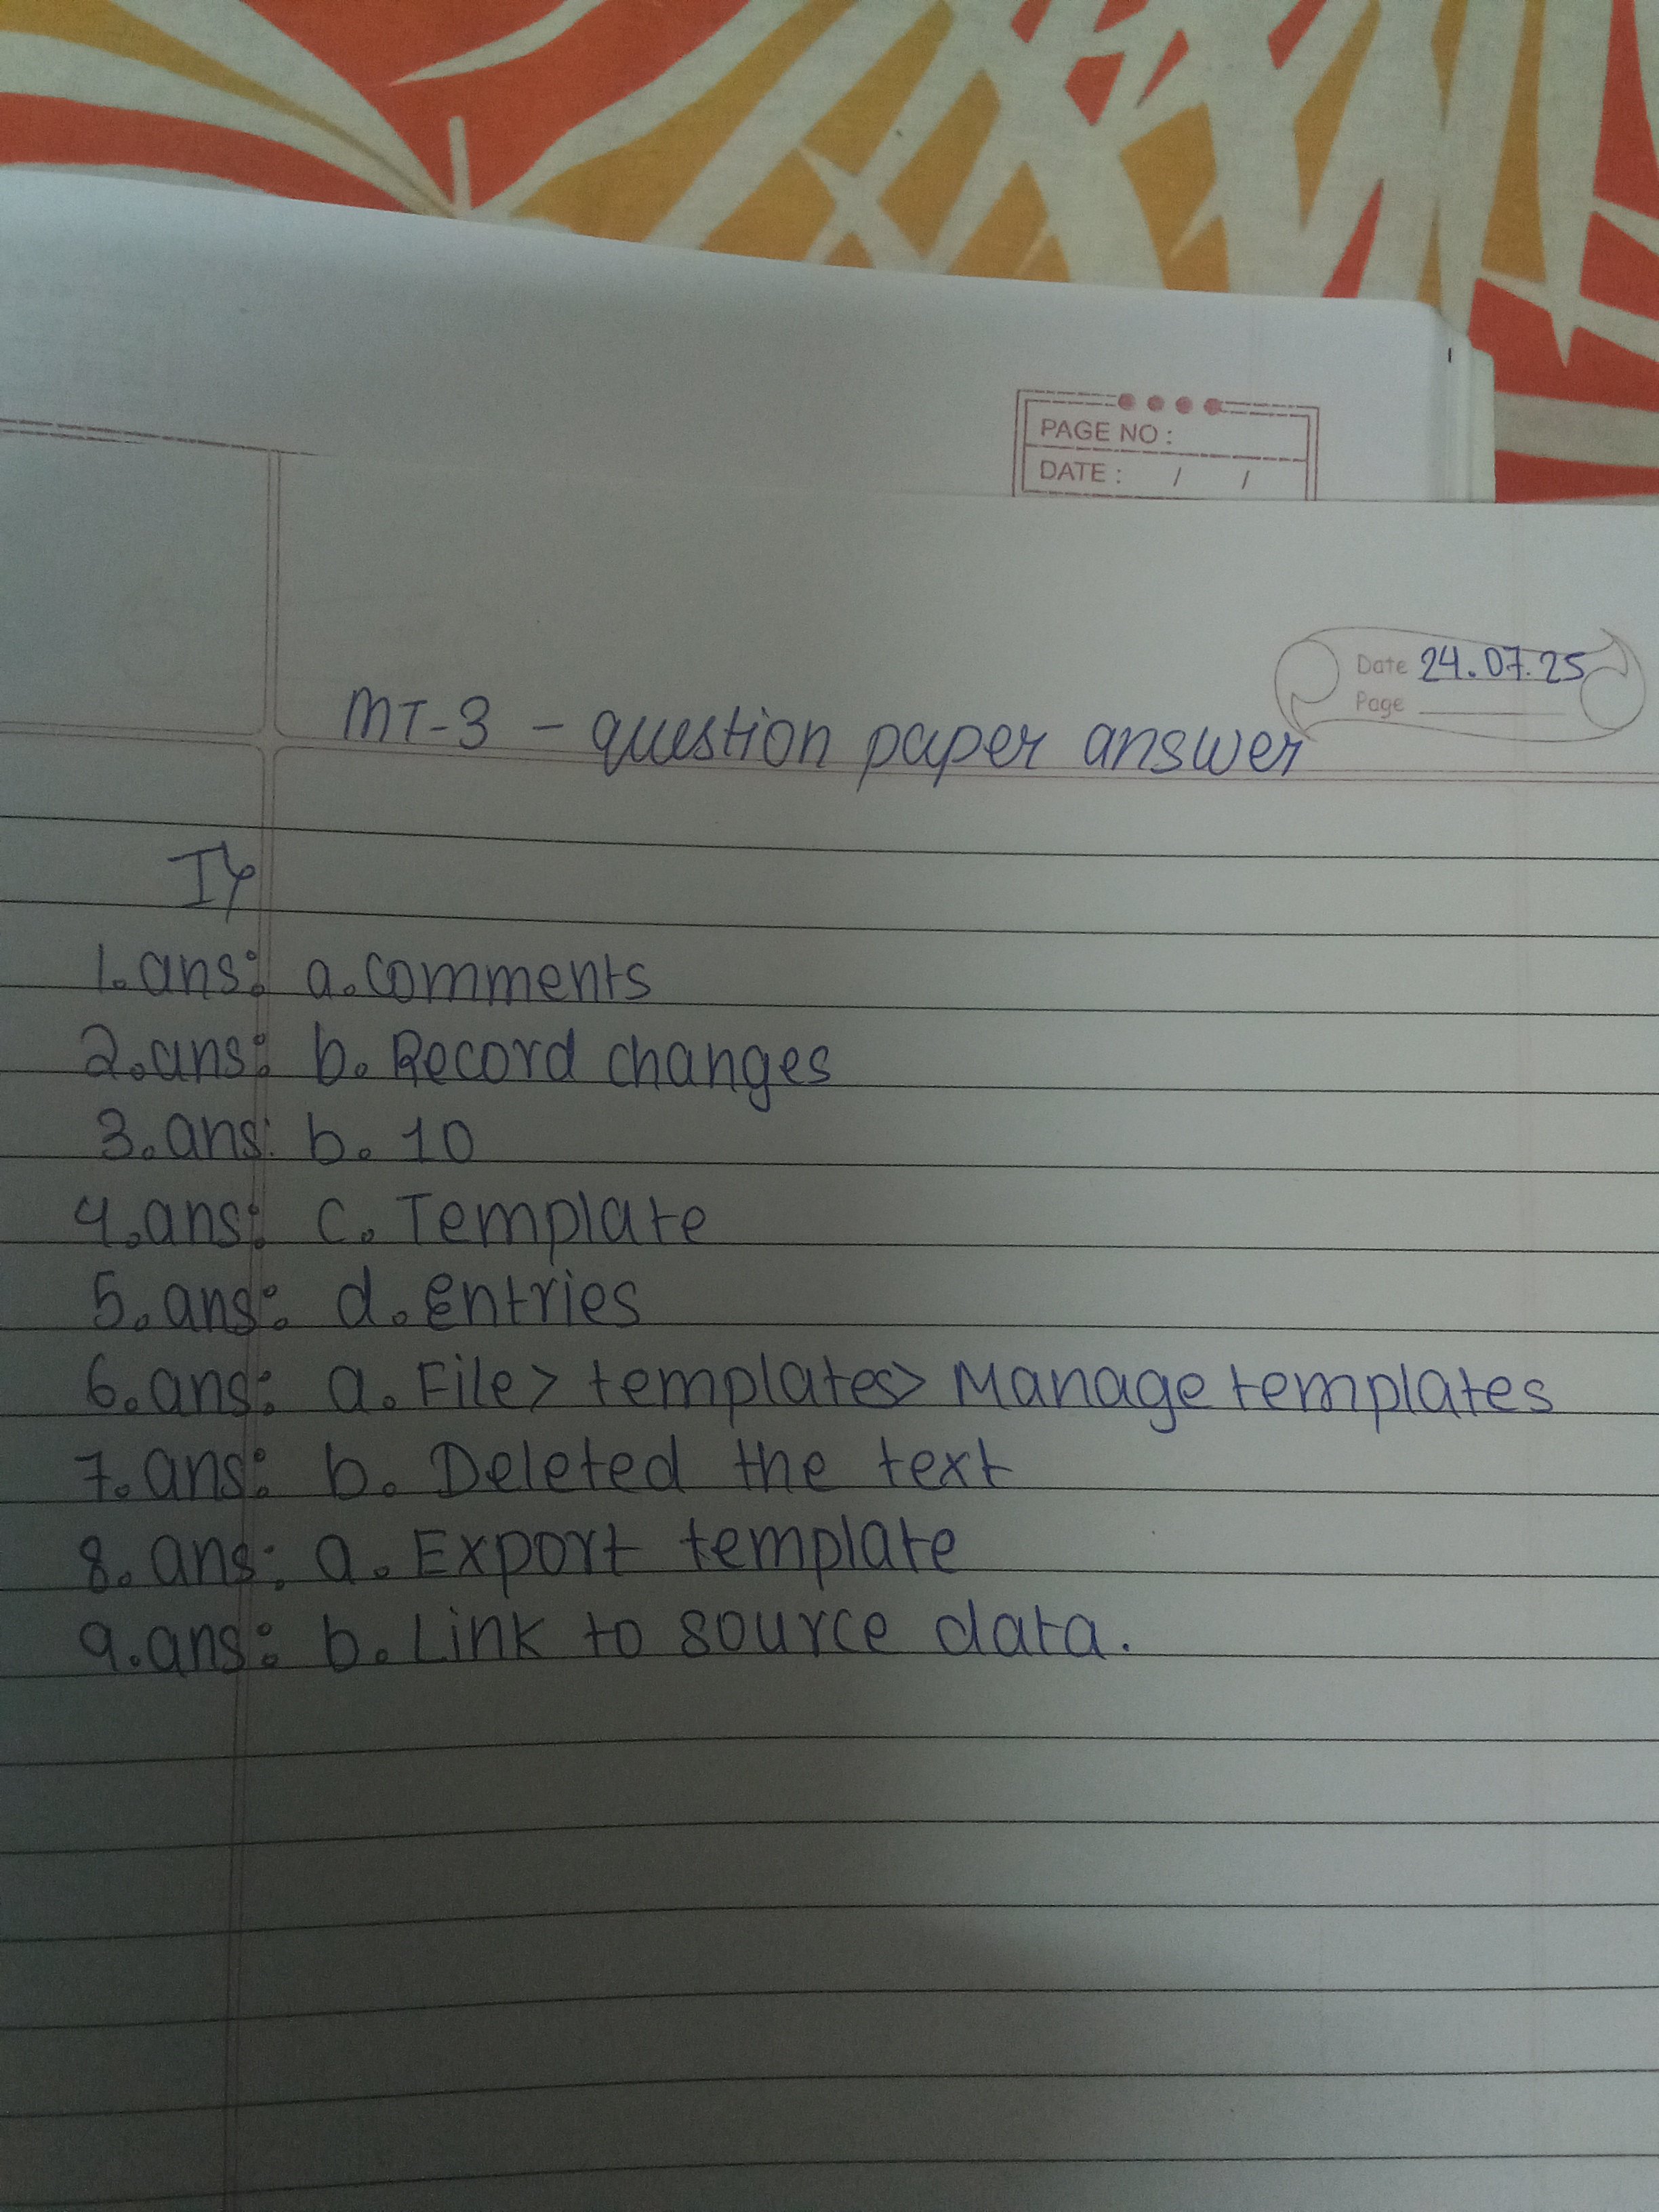 PAGE NO :
DATE : / /
Date 24.07.25
Page
MT-3 - question paper answer
I
1.ans: a.comments
2.ans: b. Record changes
3.ans: b. 10
4.ans: c. Template
5.ans: d. entries
6.ans: a. File> templates> Manage templates
7.ans: b. Deleted the text
8.ans: a. Export template
9.ans: b. Link to source data.